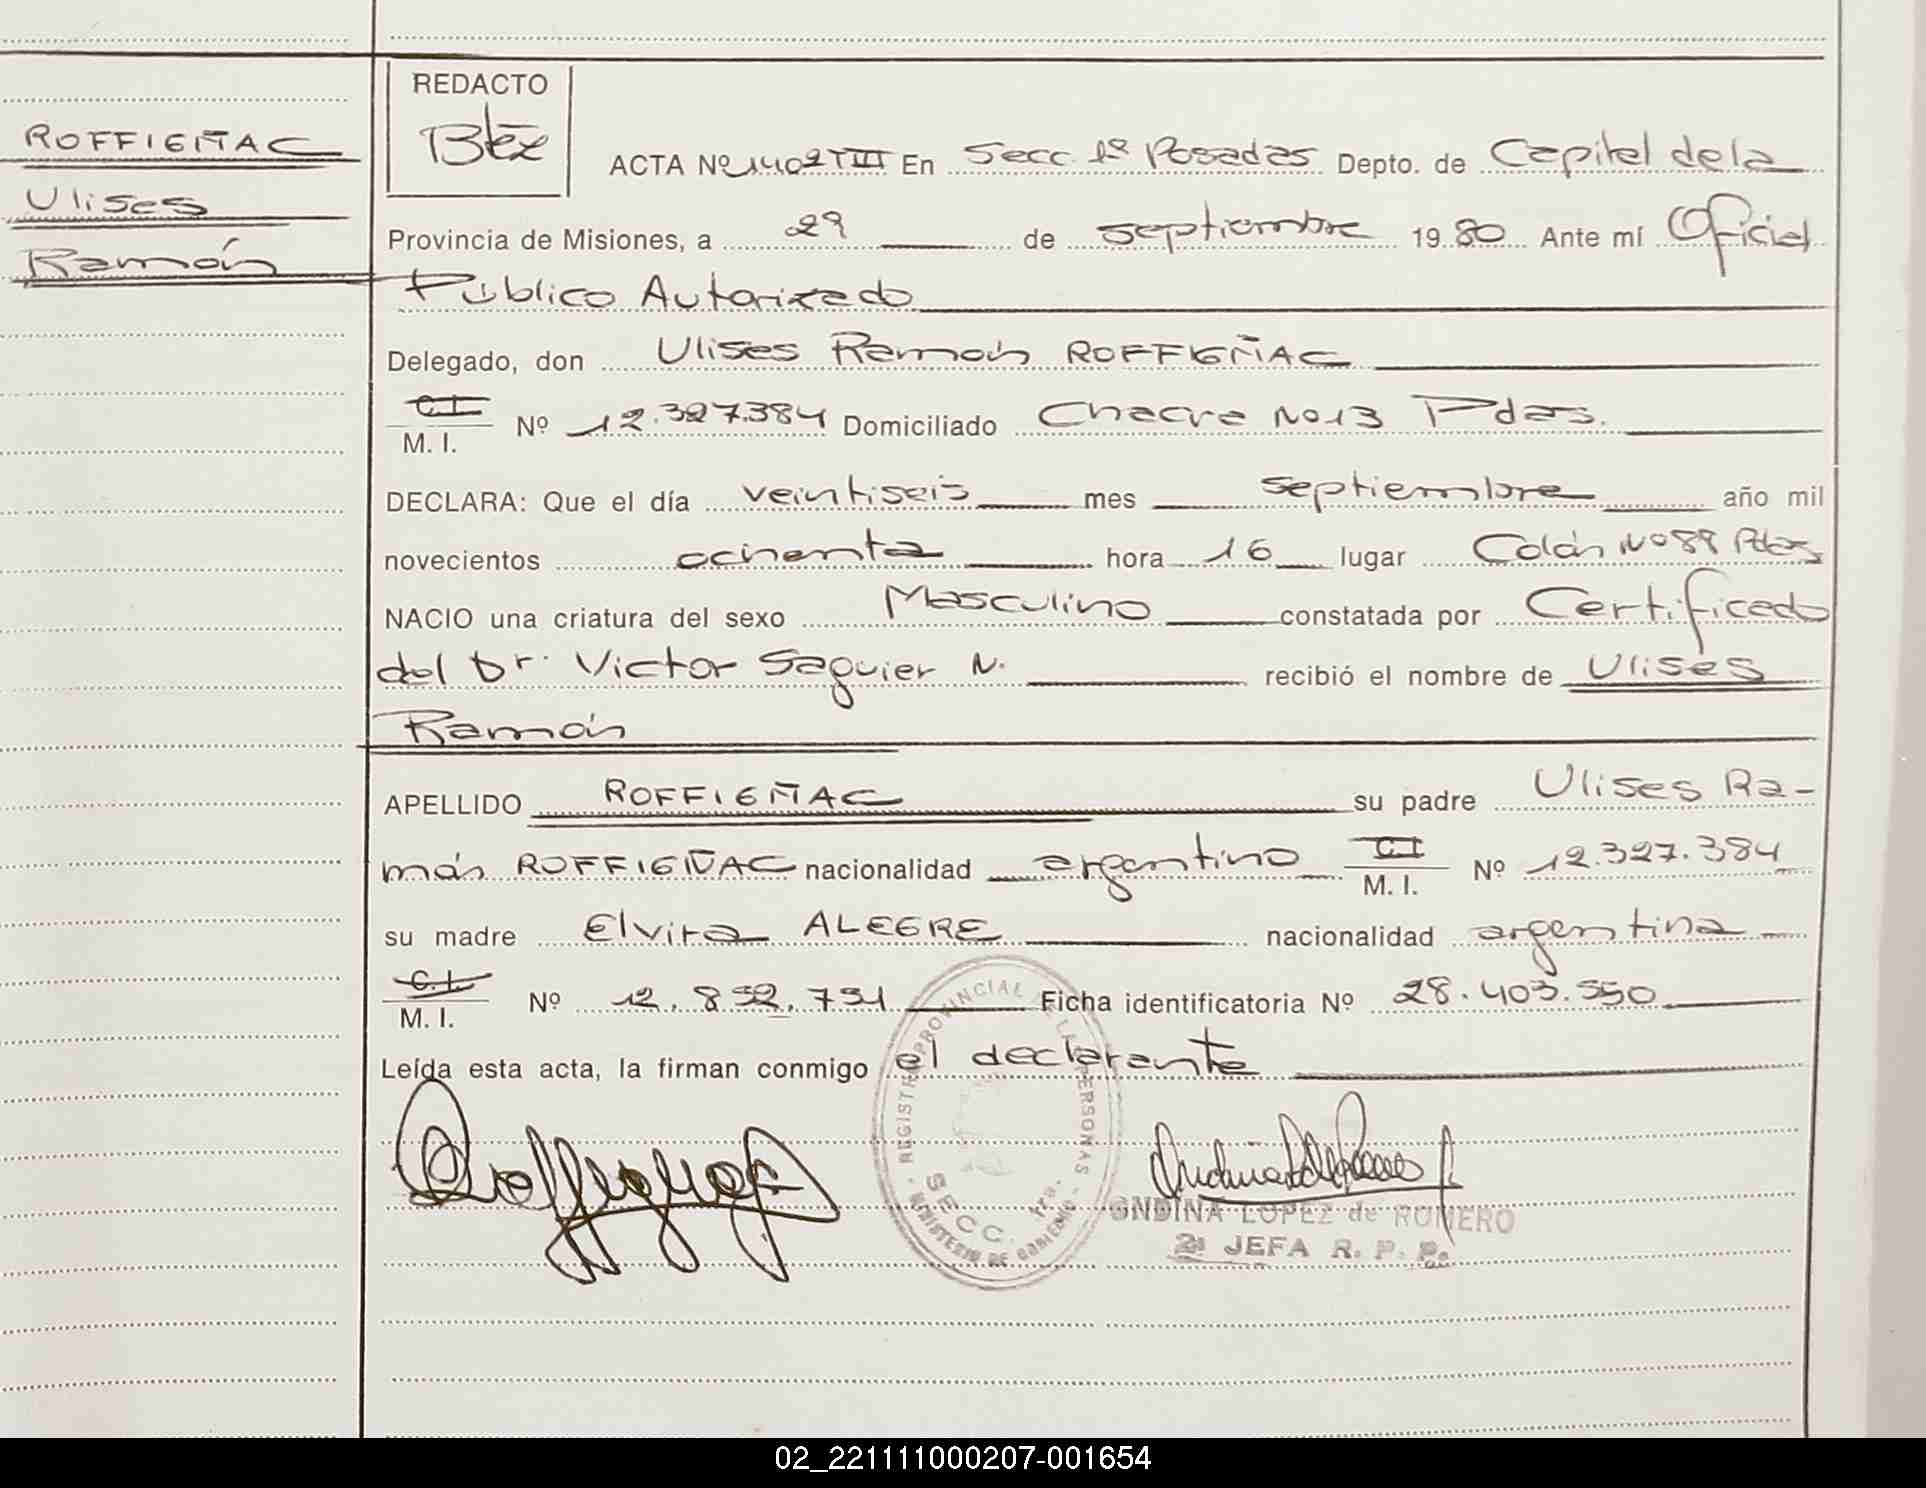 ROFFIEÑAC
Ulises
Ramón
REDACTO
Btëz
ACTA Nº 1402 TIII En Secc. 1ª Posadas Depto. de Capital de la
Provincia de Misiones, a 29 de septiembre 1980 Ante mí Oficial
Público Autorizado
Delegado, don Ulises Ramón ROFFIEÑAC
C.I.
M. I. Nº 12.327.384 Domiciliado Chacra Nº 13 Pdas.
DECLARA: Que el día veintiseis mes septiembre año mil
novecientos ochenta hora 16 lugar Colón Nº 89 Pdas.
NACIO una criatura del sexo Masculino constatada por Certificado
del Dr. Victor Saguier N. recibió el nombre de Ulises
Ramón
APELLIDO ROFFIEÑAC su padre Ulises Ra-
món ROFFIEÑAC nacionalidad argentino C.I. M. I. Nº 12.327.384
su madre Elvira ALEGRE nacionalidad argentina
C.I.
M. I. Nº 12.892.731 Ficha identificatoria Nº 28.403.550
Leída esta acta, la firman conmigo el declarante
REGISTRO PROVINCIAL DE LAS PERSONAS
SECC. 1ra.
MINISTERIO DE GOBIERNO
ONDINA LOPEZ de ROMERO
2ª JEFA R. P. P.
02_221111000207-001654